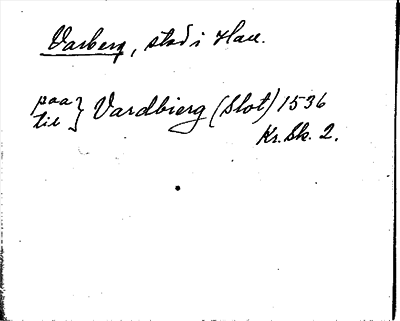 Varberg, stad i Hall.
paa } Vardbierg (Slot) 1536
til
Kr. Sk. 2.